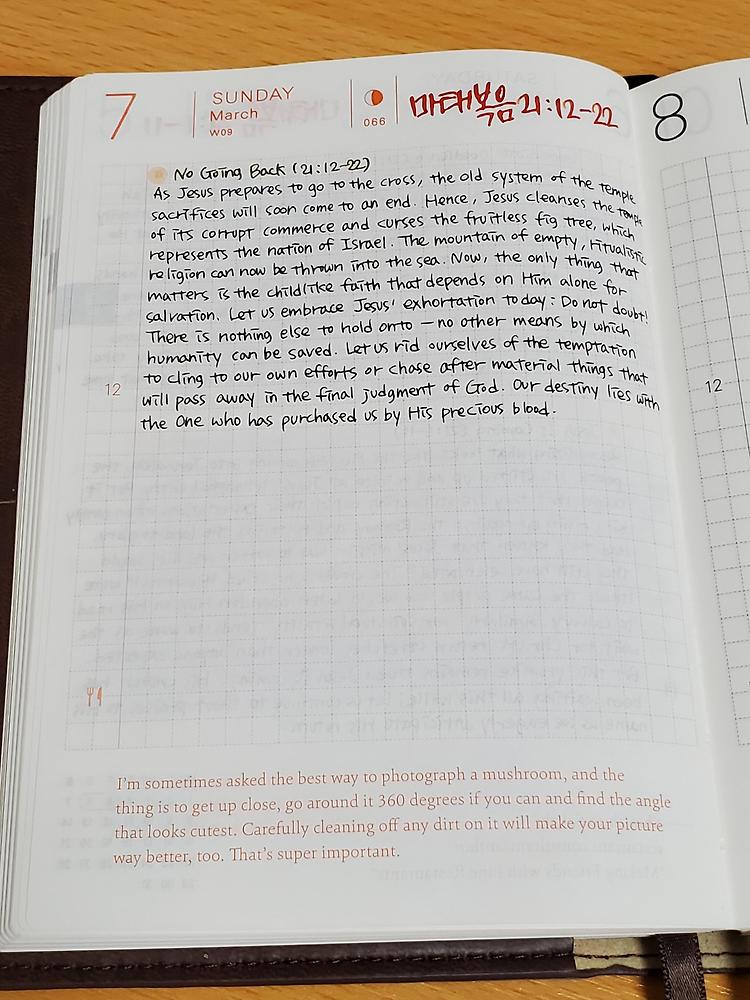 7
SUNDAY
March
W09
066
마태복음 21:12-22
8
No Going Back (21:12-22)
As Jesus prepares to go to the cross, the old system of the temple
sacrifices will soon come to an end. Hence, Jesus cleanses the temple
of its corrupt commerce and curses the fruitless fig tree, which
represents the nation of Israel. The mountain of empty, ritualistic
religion can now be thrown into the sea. Now, the only thing that
matters is the childlike faith that depends on Him alone for
salvation. Let us embrace Jesus' exhortation today: Do not doubt!
There is nothing else to hold onto – no other means by which
humanity can be saved. Let us rid ourselves of the temptation
to cling to our own efforts or chase after material things that
12
will pass away in the final judgment of God. Our destiny lies with
12
the One who has purchased us by His precious blood.
I'm sometimes asked the best way to photograph a mushroom, and the
thing is to get up close, go around it 360 degrees if you can and find the angle
that looks cutest. Carefully cleaning off any dirt on it will make your picture
way better, too. That's super important.